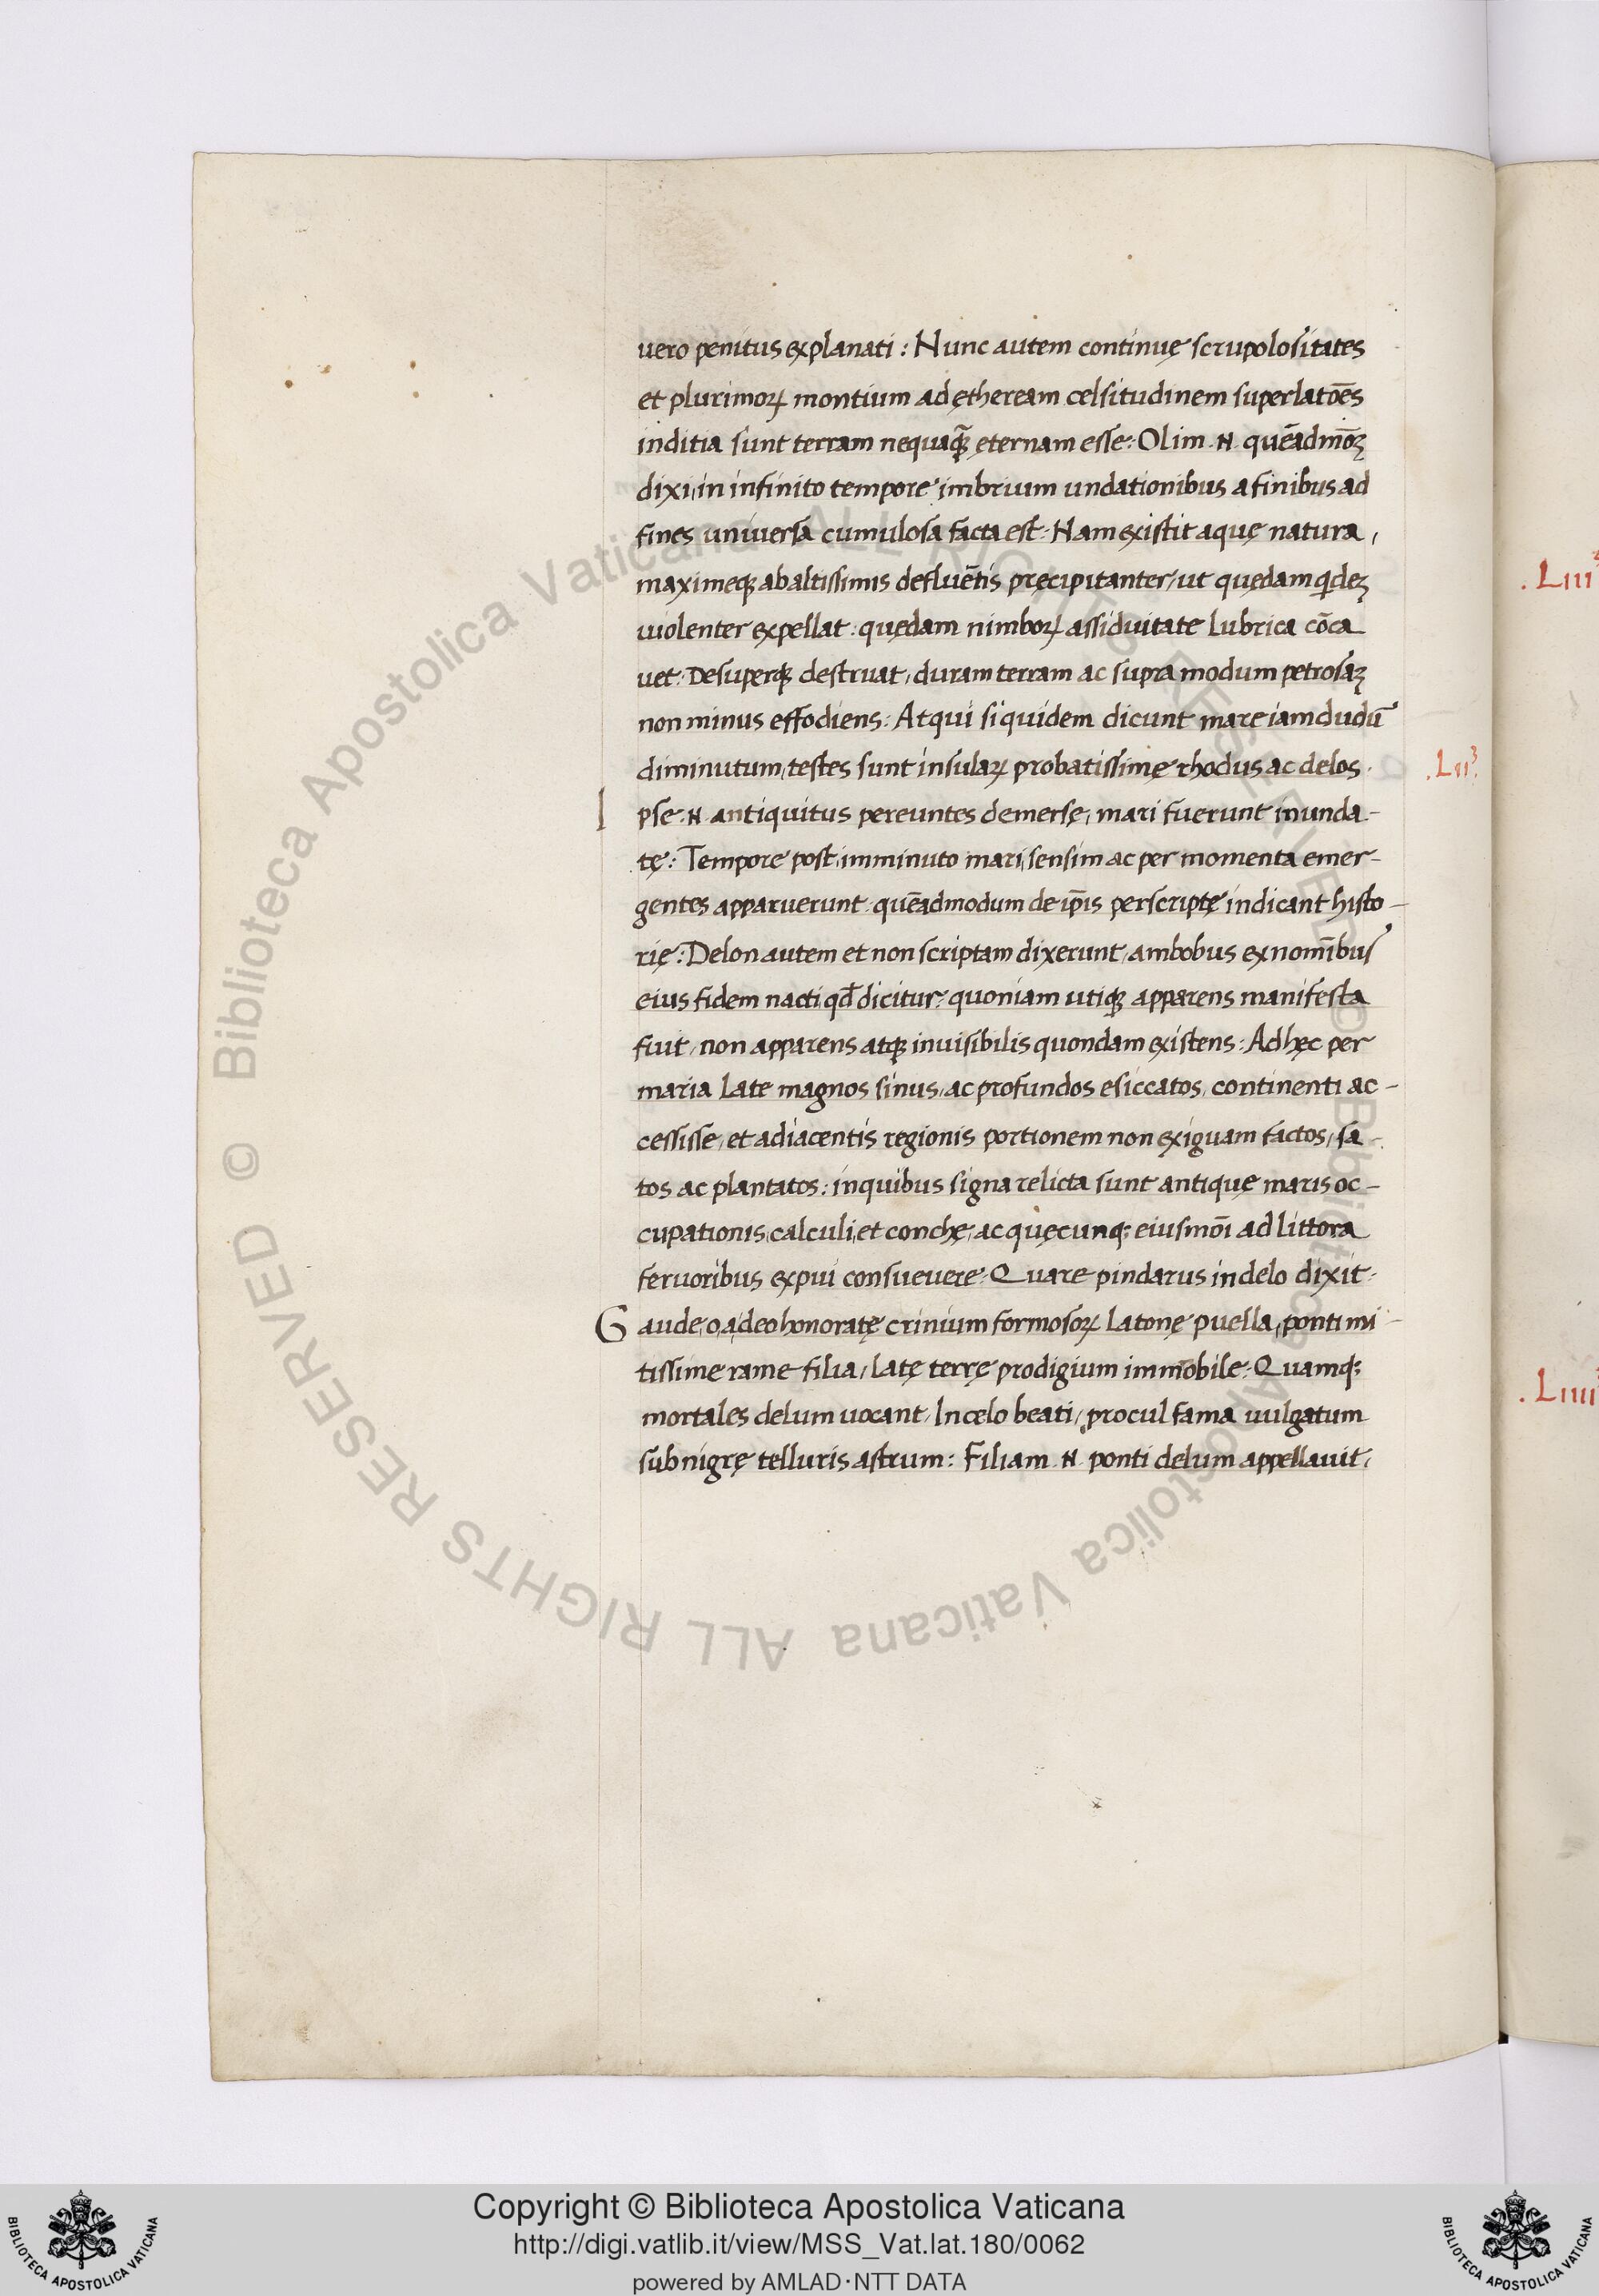 uero penitus explanati : Nunc autem continuę scrupolositates
et plurimorꝝ montium ad ętheream celsitudinem superlatōēs
inditia sunt terram nequaꝗ̄ ęternam esse : Olim .N. quēadmōꝫ
dixi, in infinito tempore imbrium undationibus a finibus ad
fines uniuersa cumulosa facta est : Nam existit aquę natura ,
maximeqꝫ ab altissimis defluētis pręcipitanter, ut quędam qͥdeꝫ
uiolenter expellat : quędam nimborꝝ assiduitate Lubrica cōca
uet : Desuperqꝫ destruat, duram terram ac supra modum petrosaꝫ
non minus effodiens : Atqui siquidem dicunt mare iamdudū
diminutum, testes sunt insularꝝ probatissimę rhodus ac delos . .Lii³.
I pse .N. antiquitus pereuntes demersę, mari fuerunt inunda-
tę : Tempore post, imminuto mari, sensim ac per momenta emer-
gentes apparuerunt : quēadmodum de ip̄is perscriptę indicant histo-
rię : Delon autem et non scriptam dixerunt, ambobus ex nomībus
eius fidem nacti qd̄ dicitur, quoniam utiqꝫ apparens manifesta
fuit, non apparens atqꝫ inuisibilis quondam existens : Ad hęc per
maria Late magnos sinus, ac profundos esiccatos, continenti ac-
cessisse, et adiacentis regionis portionem non exiguam factos, sa-
tos ac plantatos : in quibus signa relicta sunt antiquę maris oc-
cupationis, calculi, et conchę, ac quęcunq; eiusmōi ad Littora
feruoribus expui consueuere : Quare pindarus in delo dixit :
G aude, o, a, deo honoratę crinium formosorꝝ Latonę puella, ponti mi-
tissime rame filia, Latę terrę prodigium immobile : Quamq;
mortales delum uocant, In cęlo beati, procul fama uulgatum
subnigrę telluris astrum : Filiam .N. ponti delum appellauit,
.Liii
.Liiii
© Biblioteca Apostolica Vaticana ALL RIGHTS RESERVED © Biblioteca Apostolica Vaticana ALL RIGHTS RESERVED
BIBLIOTECA APOSTOLICA VATICANA
Copyright © Biblioteca Apostolica Vaticana
http://digi.vatlib.it/view/MSS_Vat.lat.180/0062
powered by AMLAD·NTT DATA
BIBLIOTECA APOSTOLICA VATICANA